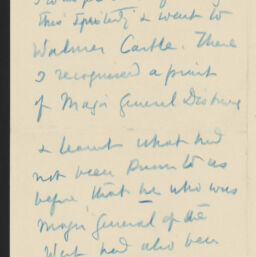 this & went to
Walmer Castle. There
I recognised a print
of Major General Disbrowe
& learnt what had
not been known to us
before, that he who was
Major General of the
West had also been